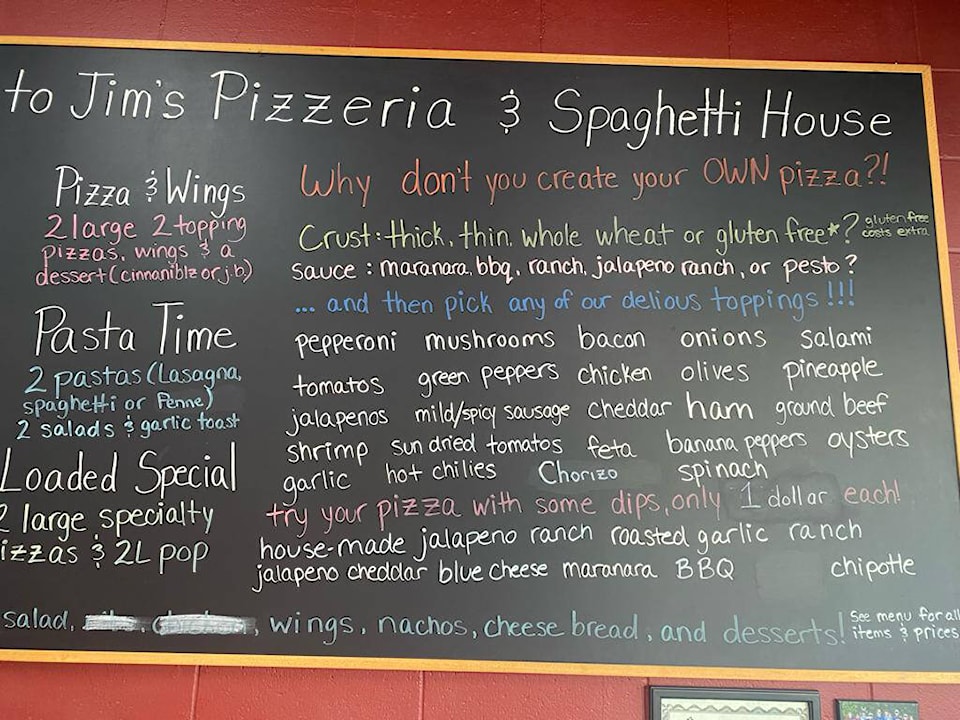 to Jim's Pizzeria & Spaghetti House
Pizza & Wings
2 large 2 topping
pizzas, wings & a
dessert (cinnaniblz or j.b.)
Pasta Time
2 pastas (Lasagna,
spaghetti or Penne)
2 salads & garlic toast
Loaded Special
2 large specialty
izzas & 2L pop
Why don't you create your OWN pizza?!
Crust: thick, thin, whole wheat or gluten free*? gluten free
costs extra
sauce: maranara, bbq, ranch, jalapeno ranch, or pesto?
... and then pick any of our delious toppings!!!
pepperoni mushrooms bacon onions salami
tomatos green peppers chicken olives pineapple
jalapenos mild/spicy sausage cheddar ham ground beef
shrimp sun dried tomatos feta banana peppers oysters
garlic hot chilies Chorizo spinach
try your pizza with some dips, only 1 dollar each!
house-made jalapeno ranch roasted garlic ranch
jalapeno cheddar blue cheese maranara BBQ chipotle
salad, wings, nachos, cheese bread, and desserts!
See menu for all
items & prices